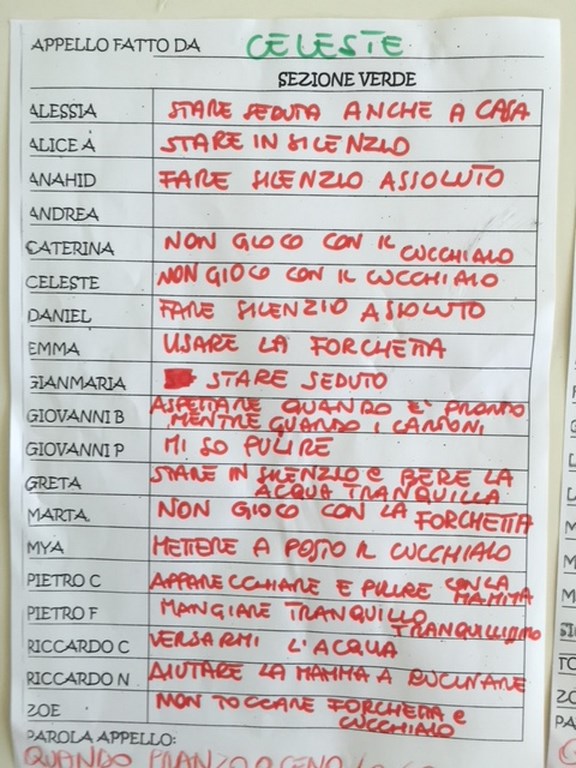 APPELLO FATTO DA CELESTE
SEZIONE VERDE
ALESSIA STARE SEDUTA ANCHE A CASA
ALICE A STARE IN SILENZIO
ANAHID FARE SILENZIO ASSOLUTO
ANDREA
CATERINA NON GIOCO CON IL CUCCHIAIO
CELESTE NON GIOCO CON IL CUCCHIAIO
DANIEL FARE SILENZIO ASSOLUTO
EMMA USARE LA FORCHETTA
GIANMARIA STARE SEDUTO
GIOVANNI B ASPETTARE QUANDO E' PRONTO
MENTRE GUARDO I CARTONI
GIOVANNI P MI SO PULIRE
GRETA STARE IN SILENZIO e BERE LA
ACQUA TRANQUILLA
MARTA NON GIOCO CON LA FORCHETTA
MYA METTERE A POSTO IL CUCCHIAIO
PIETRO C APPARECCHIARE E PULIRE CON LA
MAMMA
PIETRO F MANGIARE TRANQUILLO
TRANQUILLISSIMO
RICCARDO C VERSARMI L'ACQUA
RICCARDO N AIUTARE LA MAMMA A CUCINARE
ZOE NON TOCCARE FORCHETTA e
CUCCHIAIO
PAROLA APPELLO:
QUANDO PRANZO O CENO